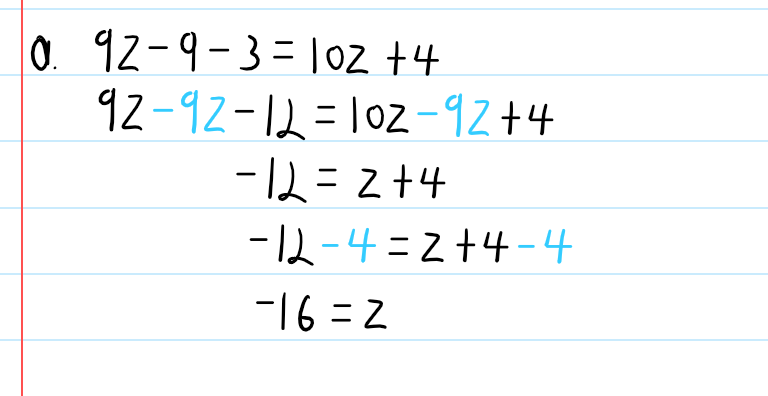 a. 9z - 9 - 3 = 10z + 4
9z - 9z - 12 = 10z - 9z + 4
-12 = z + 4
-12 - 4 = z + 4 - 4
-16 = z